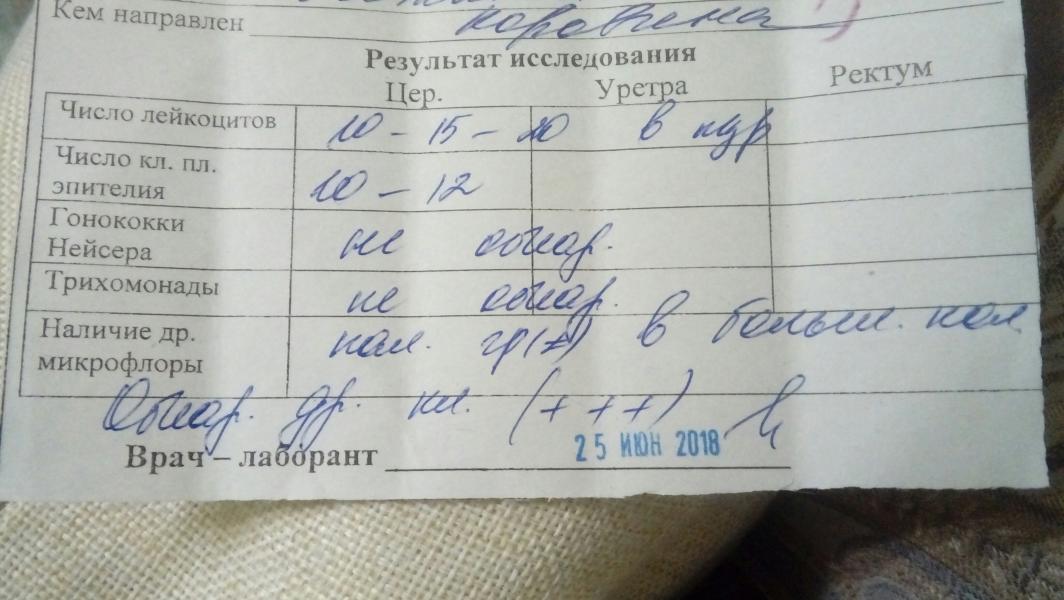 Кем направлен
Результат исследования
Цер. Уретра Ректум
Число лейкоцитов 10 - 15 - 20 в
Число кл. пл. эпителия 10 - 12
Гонококки Нейсера не обнар.
Трихомонады не обнар.
Наличие др. микрофлоры пал. гр(±) в больш. кол.
Обнар. др. кл. (+ + +)
Врач – лаборант
25 ИЮН 2018